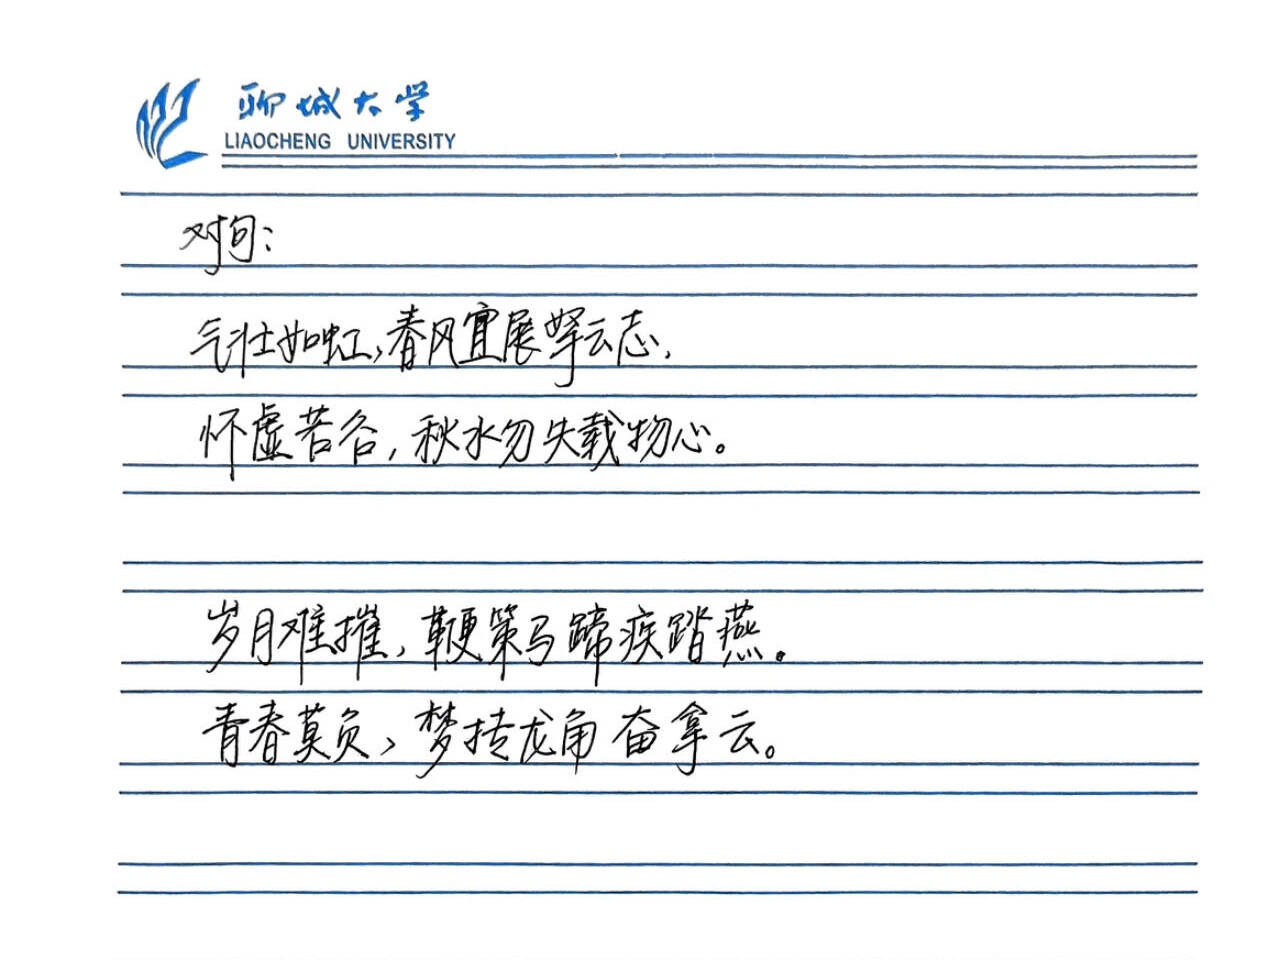 聊城大学
LIAOCHENG UNIVERSITY
对句：
气壮如虹，春风宜展拏云志，
怀虚若谷，秋水勿失载物心。
岁月难摧，鞭策马蹄疾踏燕。
青春莫负，梦抟龙角奋拿云。